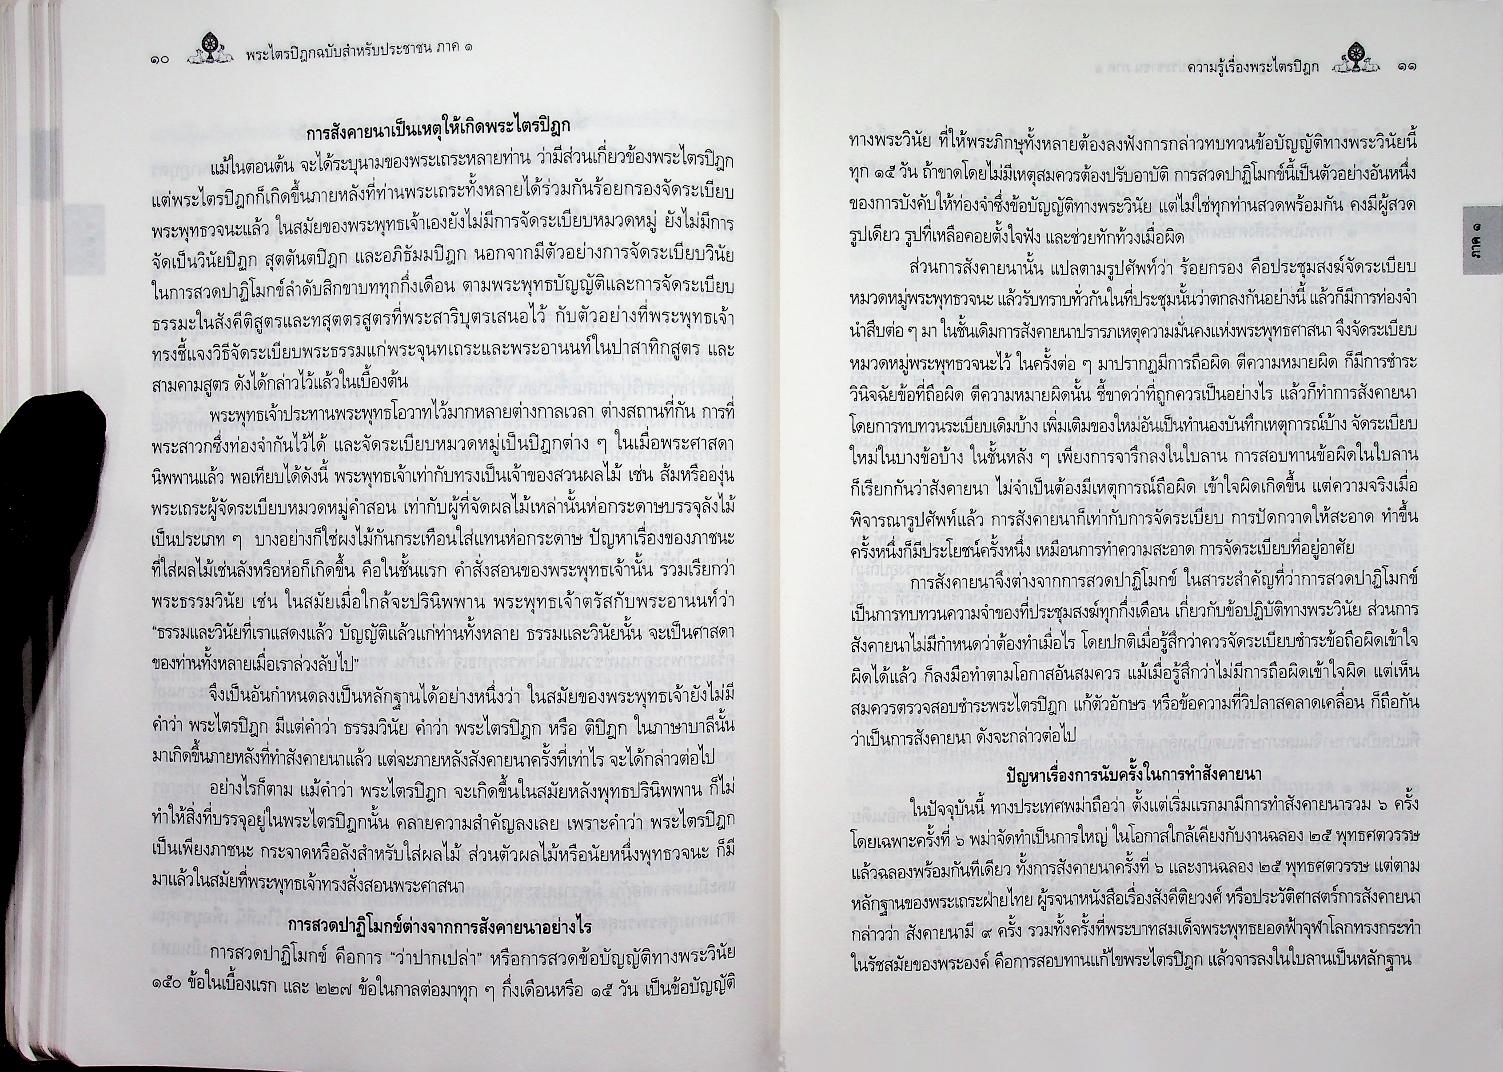 ๑๐ พระไตรปิฎกฉบับสำหรับประชาชน ภาค ๑
การสังคายนาเป็นเหตุให้เกิดพระไตรปิฎก
แม้ในตอนต้น จะได้ระบุนามของพระเถระหลายท่าน ว่ามีส่วนเกี่ยวข้องพระไตรปิฎก
แต่พระไตรปิฎกก็เกิดขึ้นภายหลังที่ท่านพระเถระทั้งหลายได้ร่วมกันร้อยกรองจัดระเบียบ
พระพุทธวจนะแล้ว ในสมัยของพระพุทธเจ้าเองยังไม่มีการจัดระเบียบหมวดหมู่ ยังไม่มีการ
จัดเป็นวินัยปิฎก สุตตันตปิฎก และอภิธัมมปิฎก นอกจากมีตัวอย่างการจัดระเบียบวินัย
ในการสวดปาฏิโมกข์ลำดับสิกขาบททุกกึ่งเดือน ตามพระพุทธบัญญัติและการจัดระเบียบ
ธรรมะในสังคีติสูตรและทสุตตรสูตรที่พระสาริบุตรเสนอไว้ กับตัวอย่างที่พระพุทธเจ้า
ทรงชี้แจงวิธีจัดระเบียบพระธรรมแก่พระจุนทเถระและพระอานนท์ในปาสาทิกสูตร และ
สามคามสูตร ดังได้กล่าวไว้แล้วในเบื้องต้น
พระพุทธเจ้าประทานพระพุทธโอวาทไว้มากหลายต่างกาลเวลา ต่างสถานที่กัน การที่
พระสาวกซึ่งท่องจำกันไว้ได้ และจัดระเบียบหมวดหมู่เป็นปิฎกต่าง ๆ ในเมื่อพระศาสดา
นิพพานแล้ว พอเทียบได้ดังนี้ พระพุทธเจ้าเท่ากับทรงเป็นเจ้าของสวนผลไม้ เช่น ส้มหรือองุ่น
พระเถระผู้จัดระเบียบหมวดหมู่คำสอน เท่ากับผู้ที่จัดผลไม้เหล่านั้นห่อกระดาษบรรจุลังไม้
เป็นประเภท ๆ บางอย่างก็ใช่ผงไม้กันกระเทือนใส่แทนห่อกระดาษ ปัญหาเรื่องของภาชนะ
ที่ใส่ผลไม้เช่นลังหรือห่อก็เกิดขึ้น คือในชั้นแรก คำสั่งสอนของพระพุทธเจ้านั้น รวมเรียกว่า
พระธรรมวินัย เช่น ในสมัยเมื่อใกล้จะปรินิพพาน พระพุทธเจ้าตรัสกับพระอานนท์ว่า
"ธรรมและวินัยที่เราแสดงแล้ว บัญญัติแล้วแก่ท่านทั้งหลาย ธรรมและวินัยนั้น จะเป็นศาสดา
ของท่านทั้งหลายเมื่อเราล่วงลับไป"
จึงเป็นอันกำหนดลงเป็นหลักฐานได้อย่างหนึ่งว่า ในสมัยของพระพุทธเจ้ายังไม่มี
คำว่า พระไตรปิฎก มีแต่คำว่า ธรรมวินัย คำว่า พระไตรปิฎก หรือ ติปิฎก ในภาษาบาลีนั้น
มาเกิดขึ้นภายหลังที่ทำสังคายนาแล้ว แต่จะภายหลังสังคายนาครั้งที่เท่าไร จะได้กล่าวต่อไป
อย่างไรก็ตาม แม้คำว่า พระไตรปิฎก จะเกิดขึ้นในสมัยหลังพุทธปรินิพพาน ก็ไม่
ทำให้สิ่งที่บรรจุอยู่ในพระไตรปิฎกนั้น คลายความสำคัญลงเลย เพราะคำว่า พระไตรปิฎก
เป็นเพียงภาชนะ กระจาดหรือลังสำหรับใส่ผลไม้ ส่วนตัวผลไม้หรือนัยหนึ่งพุทธวจนะ ก็มี
มาแล้วในสมัยที่พระพุทธเจ้าทรงสั่งสอนพระศาสนา
การสวดปาฏิโมกข์ต่างจากการสังคายนาอย่างไร
การสวดปาฏิโมกข์ คือการ "ว่าปากเปล่า" หรือการสวดข้อบัญญัติทางพระวินัย
๑๕๐ ข้อในเบื้องแรก และ ๒๒๗ ข้อในกาลต่อมาทุก ๆ กึ่งเดือนหรือ ๑๕ วัน เป็นข้อบัญญัติ
ความรู้เรื่องพระไตรปิฎก ๑๑
ทางพระวินัย ที่ให้พระภิกษุทั้งหลายต้องลงฟังการกล่าวทบทวนข้อบัญญัติทางพระวินัยนี้
ทุก ๑๕ วัน ถ้าขาดโดยไม่มีเหตุสมควรต้องปรับอาบัติ การสวดปาฏิโมกข์นี้เป็นตัวอย่างอันหนึ่ง
ของการบังคับให้ท่องจำซึ่งข้อบัญญัติทางพระวินัย แต่ไม่ใช่ทุกท่านสวดพร้อมกัน คงมีผู้สวด
รูปเดียว รูปที่เหลือคอยตั้งใจฟัง และช่วยทักท้วงเมื่อผิด
ภาค ๑
ส่วนการสังคายนานั้น แปลตามรูปศัพท์ว่า ร้อยกรอง คือประชุมสงฆ์จัดระเบียบ
หมวดหมู่พระพุทธวจนะ แล้วรับทราบทั่วกันในที่ประชุมนั้นว่าตกลงกันอย่างนี้ แล้วก็มีการท่องจำ
นำสืบต่อ ๆ มา ในชั้นเดิมการสังคายนาปรารภเหตุความมั่นคงแห่งพระพุทธศาสนา จึงจัดระเบียบ
หมวดหมู่พระพุทธวจนะไว้ ในครั้งต่อ ๆ มาปรากฏมีการถือผิด ตีความหมายผิด ก็มีการชำระ
วินิจฉัยข้อที่ถือผิด ตีความหมายผิดนั้น ชี้ขาดว่าที่ถูกควรเป็นอย่างไร แล้วก็ทำการสังคายนา
โดยการทบทวนระเบียบเดิมบ้าง เพิ่มเติมของใหม่อันเป็นทำนองบันทึกเหตุการณ์บ้าง จัดระเบียบ
ใหม่ในบางข้อบ้าง ในชั้นหลัง ๆ เพียงการจารึกลงในใบลาน การสอบทานข้อผิดในใบลาน
ก็เรียกกันว่าสังคายนา ไม่จำเป็นต้องมีเหตุการณ์ถือผิด เข้าใจผิดเกิดขึ้น แต่ความจริงเมื่อ
พิจารณารูปศัพท์แล้ว การสังคายนาก็เท่ากับการจัดระเบียบ การปัดกวาดให้สะอาด ทำขึ้น
ครั้งหนึ่งก็มีประโยชน์ครั้งหนึ่ง เหมือนการทำความสะอาด การจัดระเบียบที่อยู่อาศัย
การสังคายนาจึงต่างจากการสวดปาฏิโมกข์ ในสาระสำคัญที่ว่าการสวดปาฏิโมกข์
เป็นการทบทวนความจำของที่ประชุมสงฆ์ทุกกึ่งเดือน เกี่ยวกับข้อปฏิบัติทางพระวินัย ส่วนการ
สังคายนาไม่มีกำหนดว่าต้องทำเมื่อไร โดยปกติเมื่อรู้สึกว่าควรจัดระเบียบชำระข้อถือผิดเข้าใจ
ผิดได้แล้ว ก็ลงมือทำตามโอกาสอันสมควร แม้เมื่อรู้สึกว่าไม่มีการถือผิดเข้าใจผิด แต่เห็น
สมควรตรวจสอบชำระพระไตรปิฎก แก้ตัวอักษร หรือข้อความที่วิปลาสคลาดเคลื่อน ก็ถือกัน
ว่าเป็นการสังคายนา ดังจะกล่าวต่อไป
ปัญหาเรื่องการนับครั้งในการทำสังคายนา
ในปัจจุบันนี้ ทางประเทศพม่าถือว่า ตั้งแต่เริ่มแรกมามีการทำสังคายนารวม ๖ ครั้ง
โดยเฉพาะครั้งที่ ๖ พม่าจัดทำเป็นการใหญ่ ในโอกาสใกล้เคียงกับงานฉลอง ๒๕ พุทธศตวรรษ
แล้วฉลองพร้อมกันทีเดียว ทั้งการสังคายนาครั้งที่ ๖ และงานฉลอง ๒๕ พุทธศตวรรษ แต่ตาม
หลักฐานของพระเถระฝ่ายไทย ผู้รจนาหนังสือเรื่องสังคีติยวงศ์ หรือประวัติศาสตร์การสังคายนา
กล่าวว่า สังคายนามี ๙ ครั้ง รวมทั้งครั้งที่พระบาทสมเด็จพระพุทธยอดฟ้าจุฬาโลกทรงกระทำ
ในรัชสมัยของพระองค์ คือการสอบทานแก้ไขพระไตรปิฎก แล้วจารลงในใบลานเป็นหลักฐาน